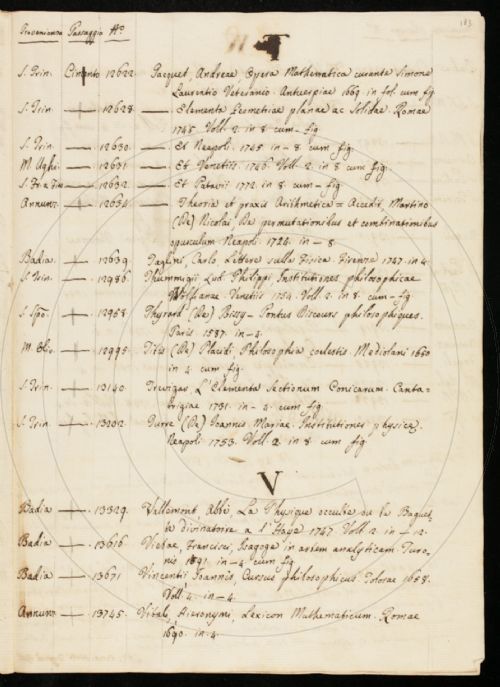 183
Provenienza Passaggio N.º
T
S. Trin. Cimento 12622. Tacquet, Andreae, Opera Mathematica curante Simone
Laurentio Veterani. Antuerpiae 1669. in fol. cum fig
S. Trin. — 12628. — Elementa Geometriae planae ac Solidae. Romae
1745. Voll. 2. in 8. cum fig.
S. Trin. — 12630. — Et Neapoli. 1745 in - 8. cum fig.
M. Ughi. — 12631 — Et Venetiis. 1746. Voll. 2. in 8 cum fig.
— 12632. — Et Patavii 1772. in 8. cum - fig
Annunz. — 12634. — Theoria et praxis Arithmetica = Accedit, Martino
(De) Nicolai, De permutationibus et combinationibus
opusculum. Neapoli. 1724. in - 8.
Badia. — 12639. Taglini, Carlo, Lettere sulla Fisica. Firenze 1747. in 4.
S. Trin. — 12986. Thummigii Lud. Philippi, Institutiones philosophicae
Wolfianae. Venetiis 1754. Voll. 2. in 8. cum - fig
S. Spo. — 12958. Thyard (De) Bissy - Pontus Discours philosophiques.
Paris 1587. in - 4.
— 12995. Titis (De) Placidi, Philosophia coelestis. Mediolani 1650
in 4. cum fig.
S. Trin. — 13140. Trevigar L' Elementa Sectionum Conicarum. Canta=
brigiae 1731. in - 4. cum fig.
S. Trin. — 13202. Turre (De) Joannis Mariae. Institutiones physicae.
Neapoli 1753. Voll. 2. in 8. cum fig.
V
Badia — 13329. Vallemont Abbé, La Physique occulte ou la Baguet,
te divinatoire a l'Haye 1747. Voll. 2. in - 12.
Badia — 13616. Vietae, Francisci, Isagoge in artem analyticam. Turo-
nis 1591. in - 4. cum fig.
Badia — 13671. Vincentii Joannis, Cursus philosophicus. Tolosae 1658.
Voll. 4. in - 4.
Annunz. — 13745. Vitali, Hieronymi, Lexicon Mathematicum. Romae
1690. in - 4.